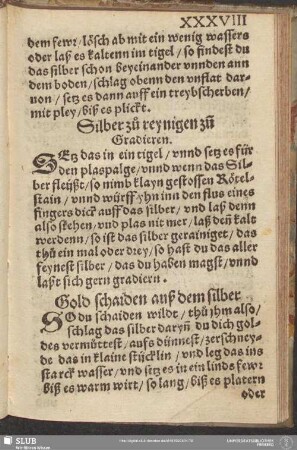 XXXVIII
dem fewr/lösch ab mit ein wenig wassers
oder laß es kaltenn im tigel/so findest du
das silber schon beyeinander vnnden ann
dem boden/schlag obenn den vnflat dar-
uon/setz es dann auff ein treybscherben/
mit pley/biß es plickt.
Silber zů reynigen zů
Gradieren.
SEtz das in ein tigel/vnnd setz es für
den plaspalge/vnnd wenn das Sil-
ber fleüßt/so nimb klayn gestossen Rötel-
stain/vnnd würff yhn inn den flus eines
fingers dick auff das silber/vnd laß denn
also stehen/vnd plas nit mer/laß denn kalt
werdenn/so ist das silber gerainiget/das
thů ein mal oder drey/so hast du das aller
feynest silber/das du haben magst/vnnd
laßt sich gern gradiern.
Gold schaiden auß dem silber
SO du schaiden wildt/thů jhm also/
schlag das silber daryñ du dich gol-
des vermüttest/aufs dünnest/zerschney-
de das in klaine stücklin/vnd leg das ins
starck wasser/vnd setz es in ein linds fewr
biß es warm wirt/so lang/biß es platern
oder
SLUB